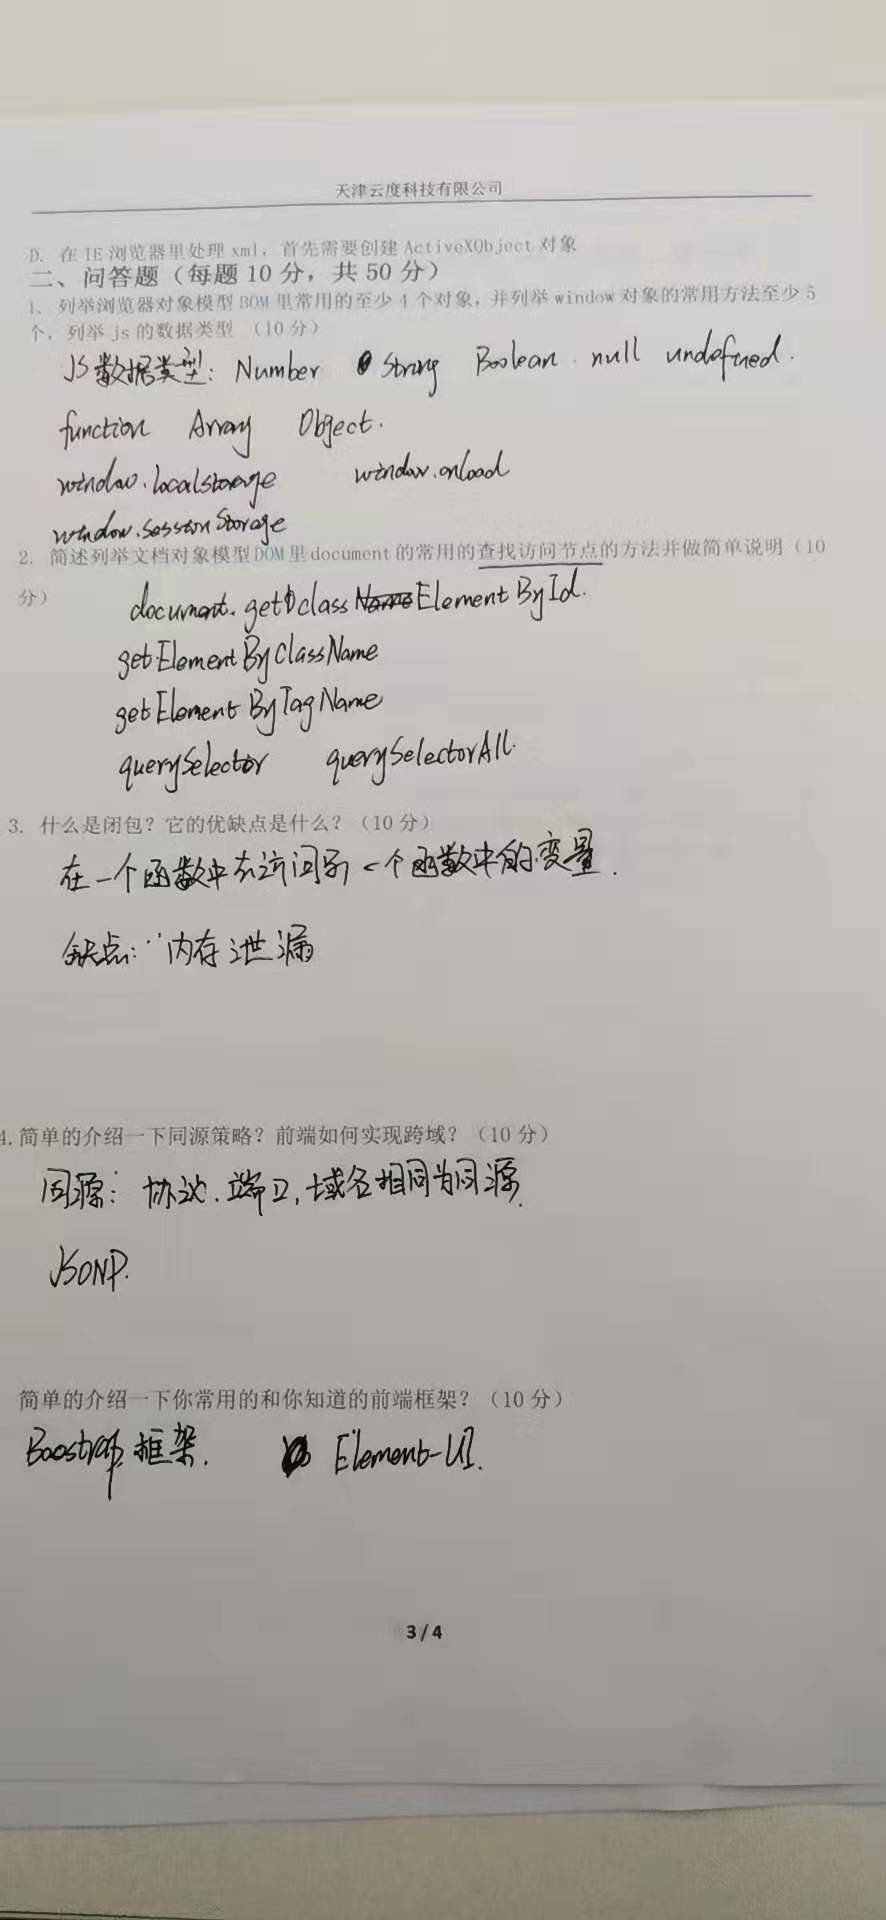 天津云度科技有限公司
D. 在 IE 浏览器里处理 xml，首先需要创建 ActiveXObject 对象
二、问答题（每题 10 分，共 50 分）
1、列举浏览器对象模型 BOM 里常用的至少 4 个对象，并列举 window 对象的常用方法至少 5
个，列举 js 的数据类型 （10 分）
JS数据类型: Number String Boolean. null undefined.
function Array Object.
window.localstorage window.onload
window.sessionStorage
2. 简述列举文档对象模型 DOM 里 document 的常用的查找访问节点的方法并做简单说明（10
分）
document.getDclass Name ElementById.
getElementByClassName
getElementByTagName
querySelector querySelectorAll.
3. 什么是闭包？它的优缺点是什么？（10 分）
在一个函数中去访问另一个函数中的变量.
缺点: 内存泄漏
4.简单的介绍一下同源策略？前端如何实现跨域？（10 分）
同源: 协议.端口,域名相同为同源.
JSONP.
简单的介绍一下你常用的和你知道的前端框架？（10 分）
Boostrap框架. Element-UI.
3 / 4